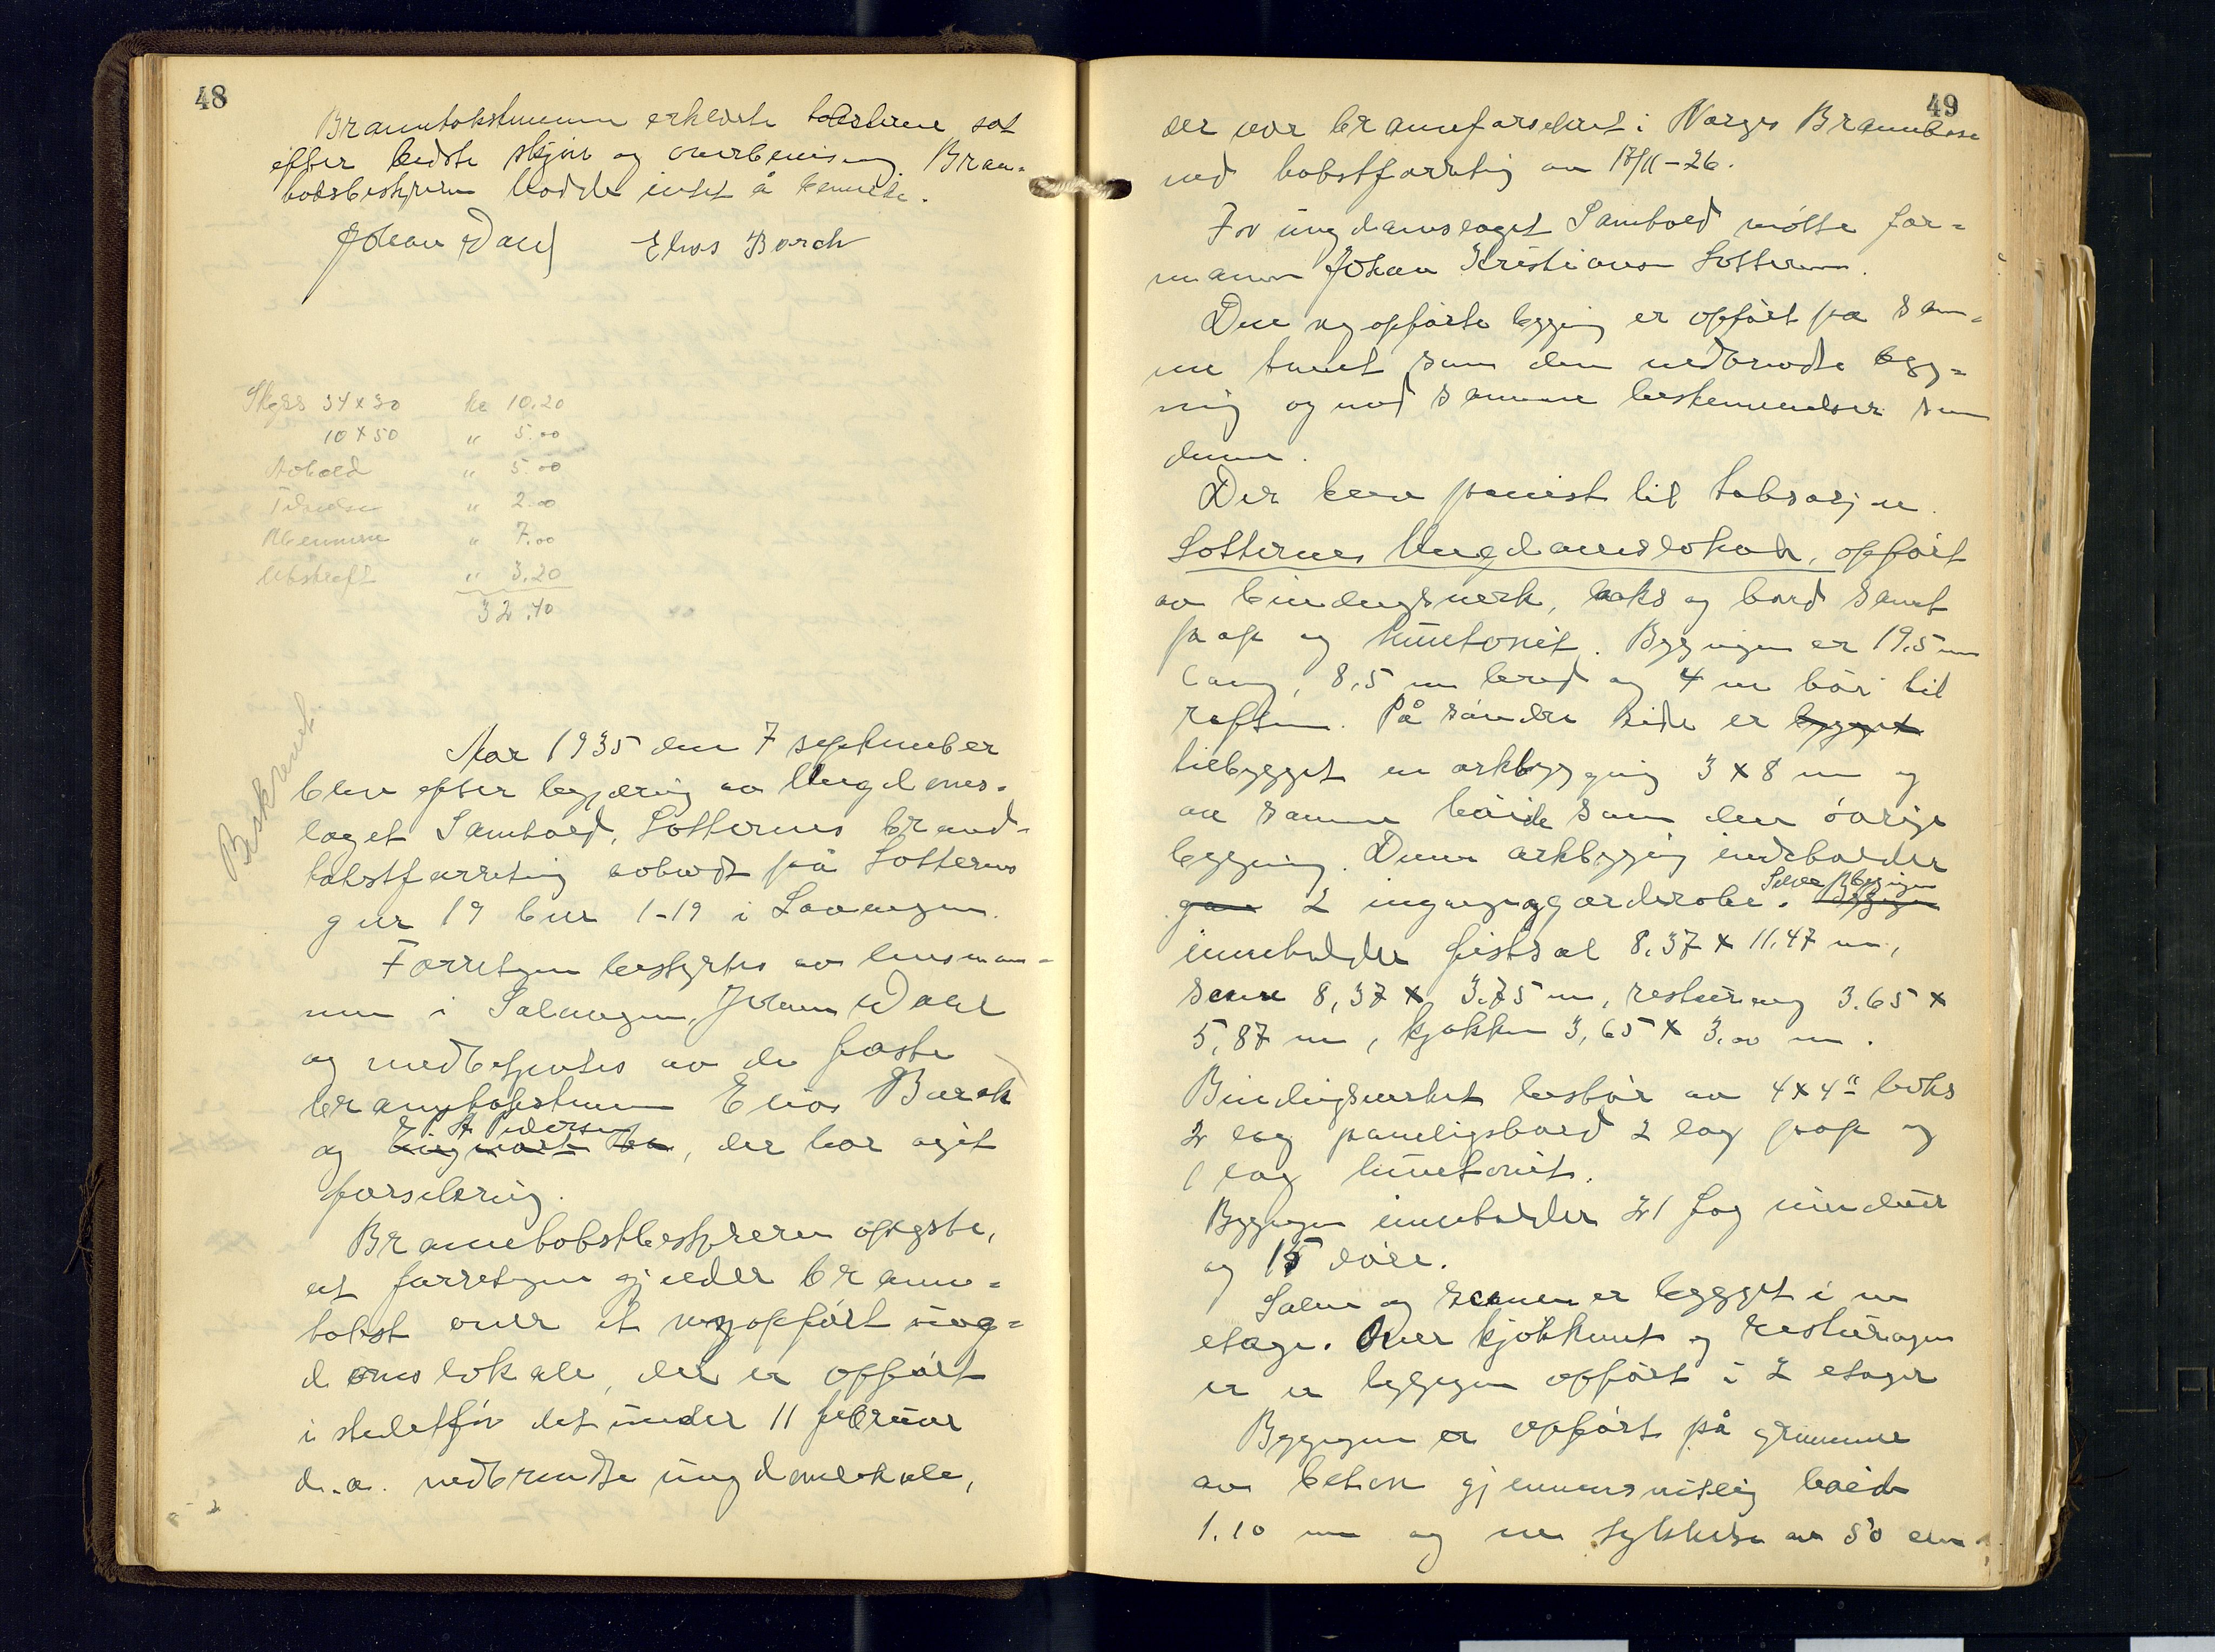 48
Branntakstmennene erklærte taksterne sat
efter bedste skjøn og overbevisning Bran-
takstbestyreren hadde intet å bemerke.
Johan Dahl Elias Borch
Skyss 34 x 30 kr 10.20
10 x 50 " 5.00
Avhold " 5.00
" 2.00
" 7.00
Utskrift " 3.20
32.40
Beskrevet
Aar 1935 den 7 september
blev efter begjæring av Ungdoms-
laget Samhold, Løtternes brand-
takstforretning avholdt på Løtternes
gnr 19 bnr 1-19 i Lavangen.
Forretningen bestyrtes av lensman-
nen i Salangen, Johan Dahl
og medbetjentes av de faste
branntakstmenn Elias Borch
og P. A. Pedersen, der har avgit
forsikring.
Branntakstbestyreren oplyste,
at forretningen gjelder brann-
takst over et nyopført ung-
domslokale, der er opført
i stedetfor det under 11 februar
d.a. nedbrendte ungdomslokale,
49
der var branneforsikret i Norges Brannkasse
ved takstforretning av 17/11-26.
For ungdomslaget Samhold møtte for-
mannen Johan Kristiansen Løtternes.
Den nyopførte bygning er opført på sam-
me tomt som den nedbrendte byg-
ning og med samme bestemmelser som
denne.
Der blev påvist til taksasjon
Løtternes Ungdomslokale, opført
av bindingsverk, laks og bord samt
papp og huntonit. Bygningen er 19,5 m
lang, 8,5 m bred og 4 m høi til
raften. På søndre side er bygget
tilbygget en arkbygging 3 x 8 m og
av samme høide som den øvrige
bygning. Denne arkbygging indeholder
2 inganger og garderobe. Selve bygningen
inneholder festsal 8,37 x 11,47 m,
scene 8,37 x 3,75 m, resturang 3.65 x
5,87 m, kjøkken 3,65 x 3,00 m.
Bindingsverket består av 4 x 4" boks
2 lag panelingsbord 2 lag papp og
1 lag huntonit.
Bygningen inneholder 21 fag vinduer
og 15 døre.
Salen og scenen er bygget i en
etage. Over kjøkkenet og resturangen
er bygningen opført i 2 etager
Bygningen er opført på grunnmur
av beton gjennemsnitlig høide
1.10 m og en tykkelse av 50 cm.